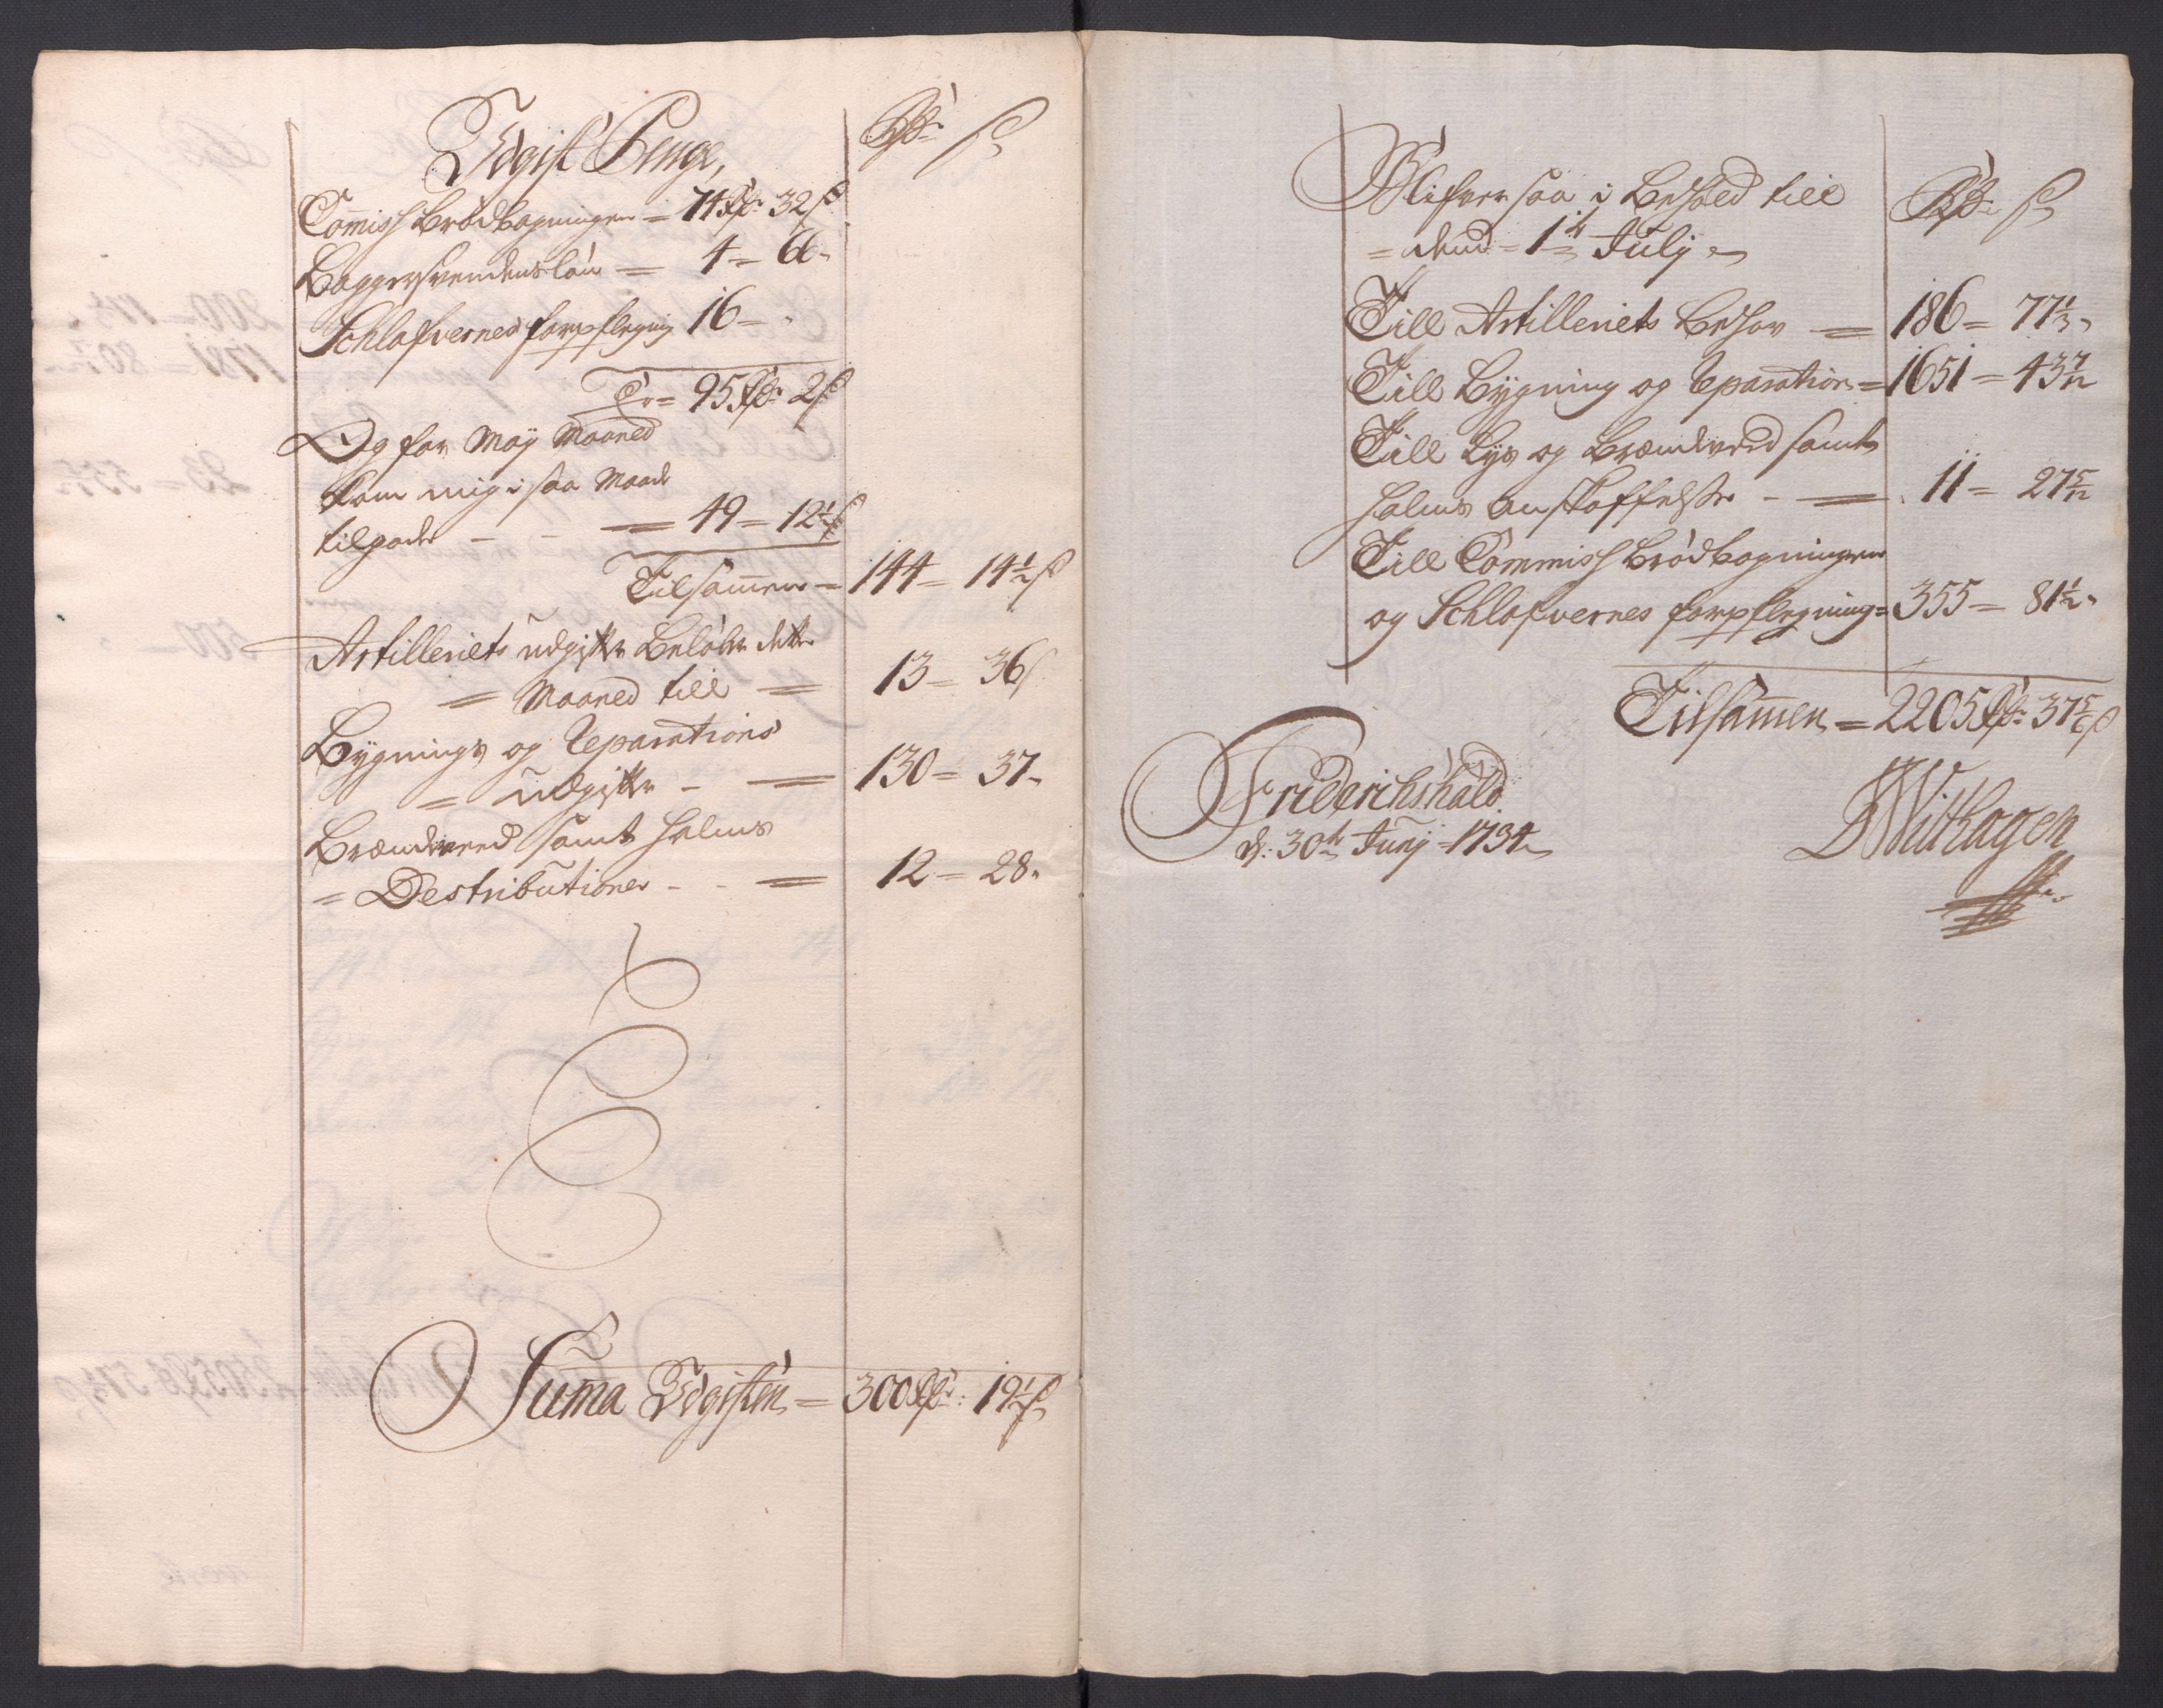 Udgift Penge,
Rdr ß
Com̄iss brødbagningen = 74 Rdr 32 ß
Baggersvendens løn = 4 = 66
Schlafvernes forpflegning 16 =
Er = 95 Rdr 2 ß
Og for Maÿ Maaned
kom mig i saa Maade
tilgode - - = 49 = 12½ ß
Tilsam̄en = 144 = 14½ ß
Artilleriets udgifter beløber dette
= Maaned till = 13 = 36 ß
Bÿgnings og Reparations
= udgifter - = 130 = 37
Brændeveed samt halms
= Destributioner - - = 12 = 28
Sum̄a Udgiften = 300 Rdr: 19½ ß
Blifver saa i behold till
= dend = 1te Julÿ
Rdr ß
Till Artilleriets behov = 186 = 77⅓
Till Bÿgning og Reparation = 1651 = 43 7/12
Till Lÿs og brændeveed samt
halms anskaffelse - = 11 = 27 5/12
Till Commiss brødbagningen
og Schlafvernes forpflegning = 355 = 81½
Tilsam̄en = 2205 Rdr 37 5/6 ß
Friderichshald
d: 30te Junj = 1734
DWithagen